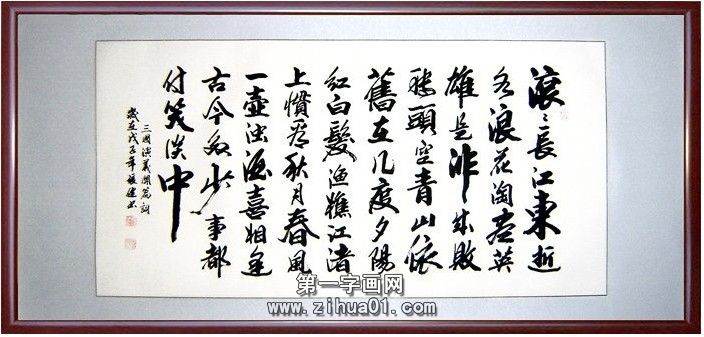 滚〻長江東逝
水浪花淘尽英
雄是非成敗
转頭空青山依
舊在几度夕陽
红白髮渔樵江渚
上慣看秋月春風
一壶浊酒喜相逢
古今多少事都
付笑谈中
三國演義開篇詞
歲在戊子年
第一字画网
www.zihua01.com